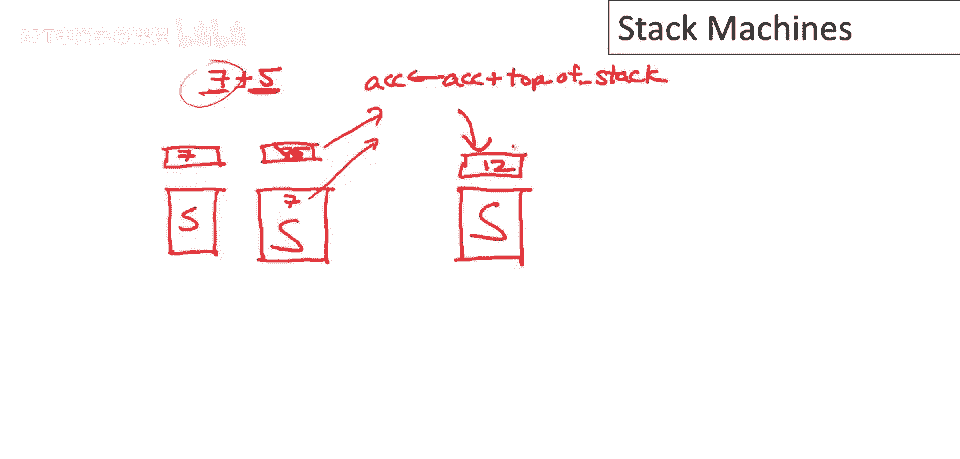 Stack Machines
7+5
acc←acc+top_of_stack
7
12
7
S
S
S